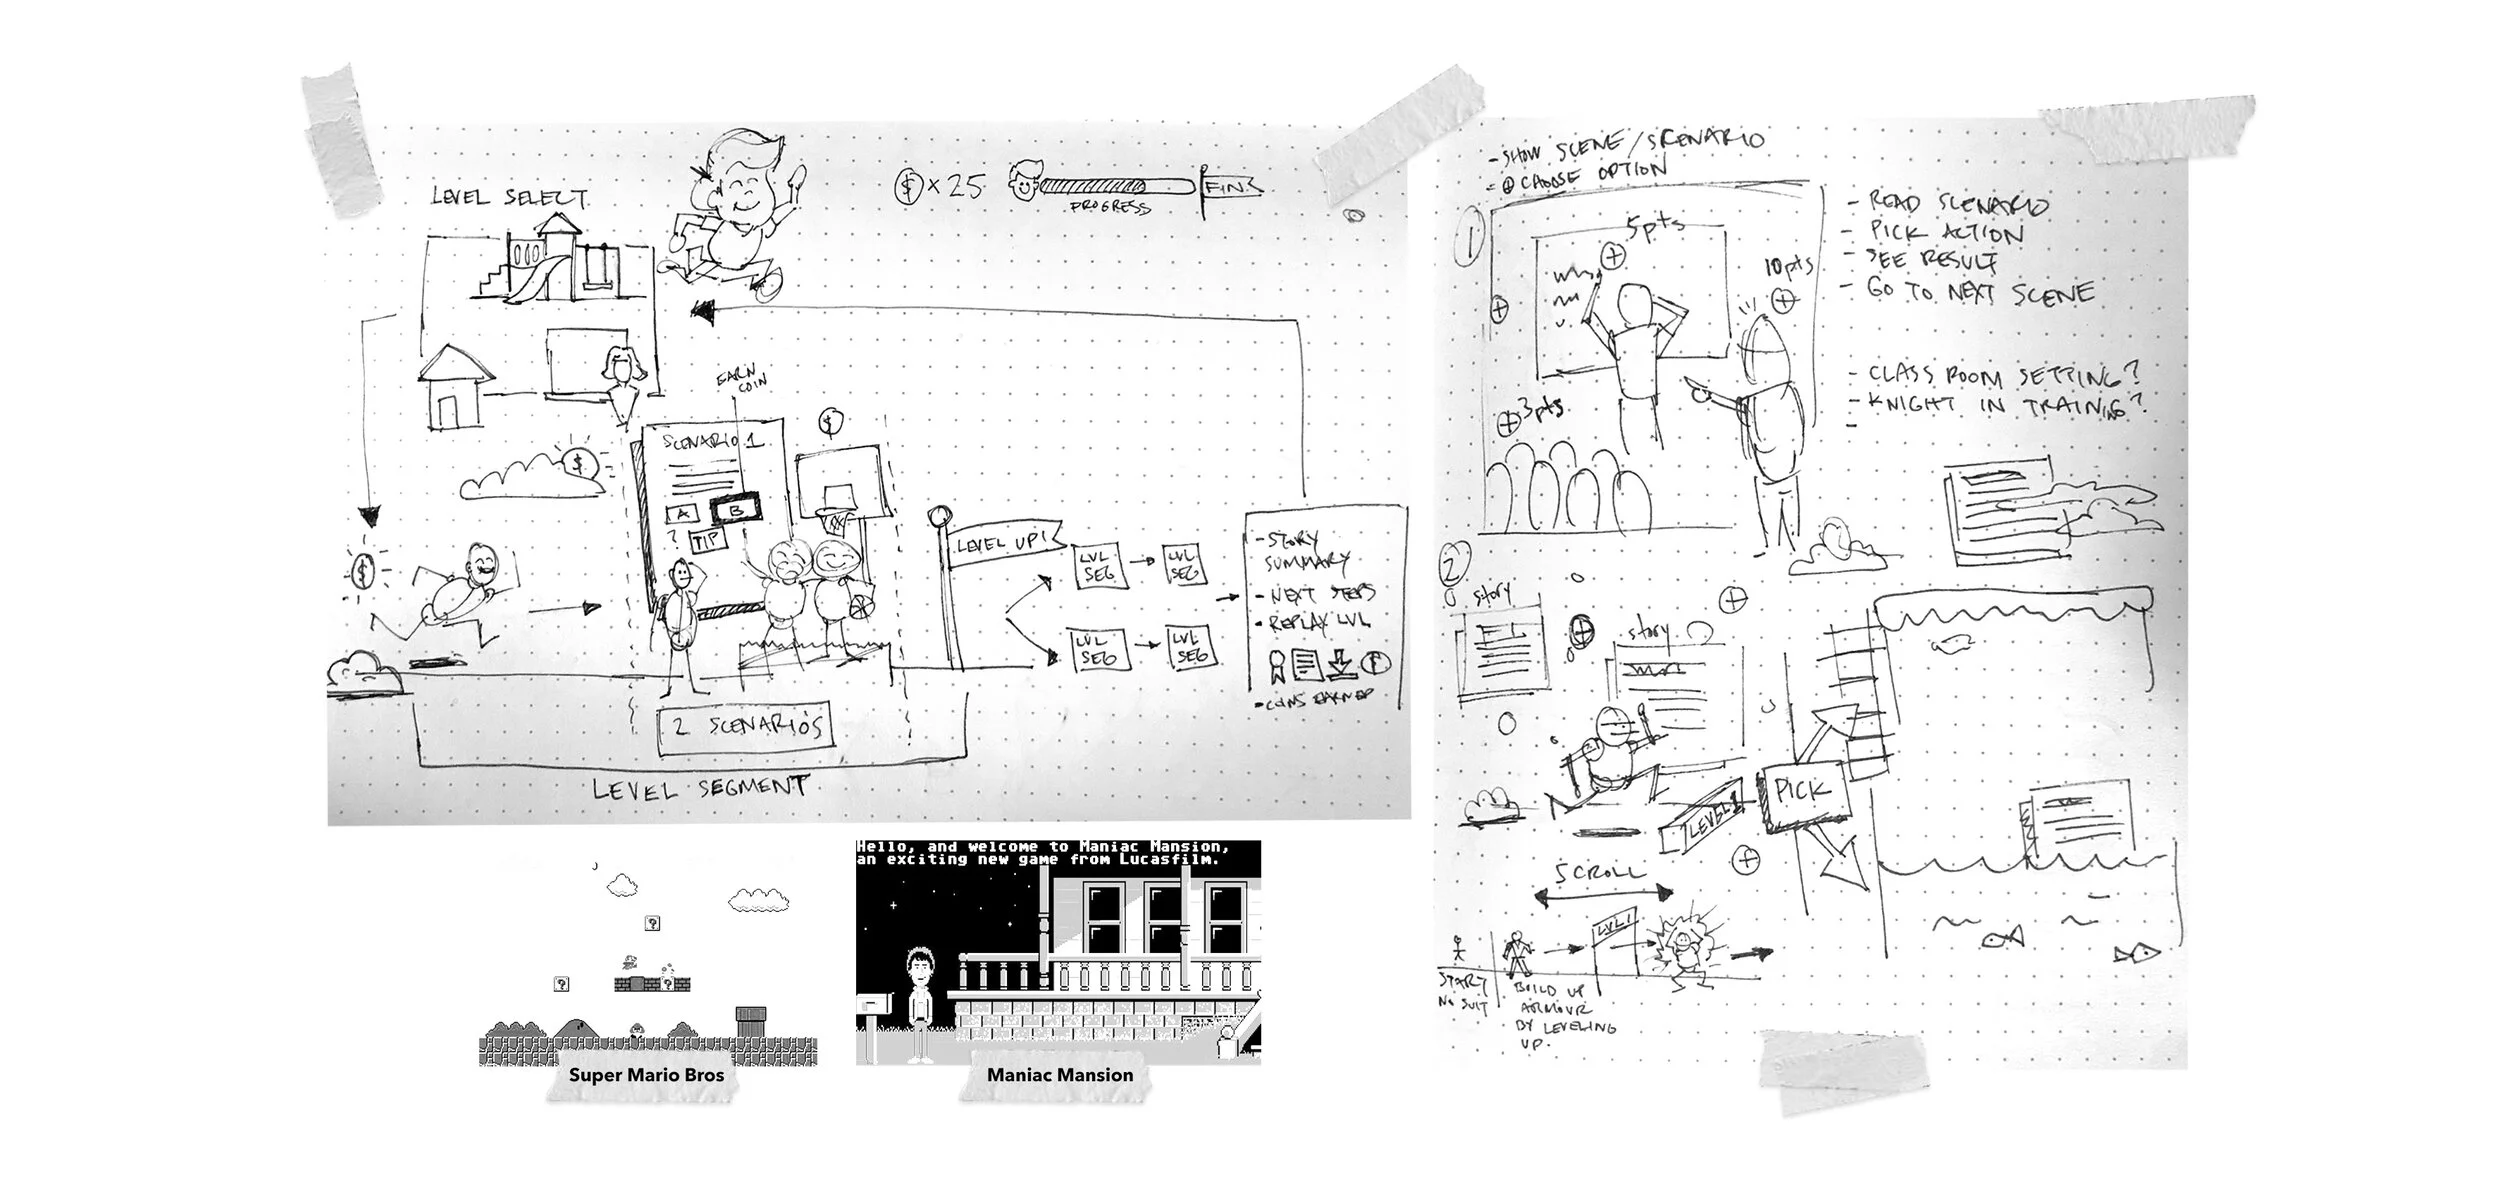 LEVEL SELECT
$ x 25
PROGRESS
FIN
EARN
COIN
$
SCENARIO 1
$
A
B
?
TIP
$
LEVEL UP!
LVL
SEG
LVL
SEG
LVL
SEG
LVL
SEG
- STORY
SUMMARY
- NEXT STEPS
- REPLAY LVL
- COINS EARNED
2 SCENARIOS
LEVEL SEGMENT
- SHOW SCENE/SCENARIO
- CHOOSE OPTION
1
5pts
10pts
3pts
- READ SCENARIO
- PICK ACTION
- SEE RESULT
- GO TO NEXT SCENE
- CLASSROOM SETTING?
- KNIGHT IN TRAINING?
-
2
story
story
PICK
LEVEL 1
SCROLL
LVL 1
START
NO SUIT
BUILD UP
ARMOUR
BY LEVELING
UP.
?
?
?
Super Mario Bros
Hello, and welcome to Maniac Mansion,
an exciting new game from Lucasfilm.
Maniac Mansion